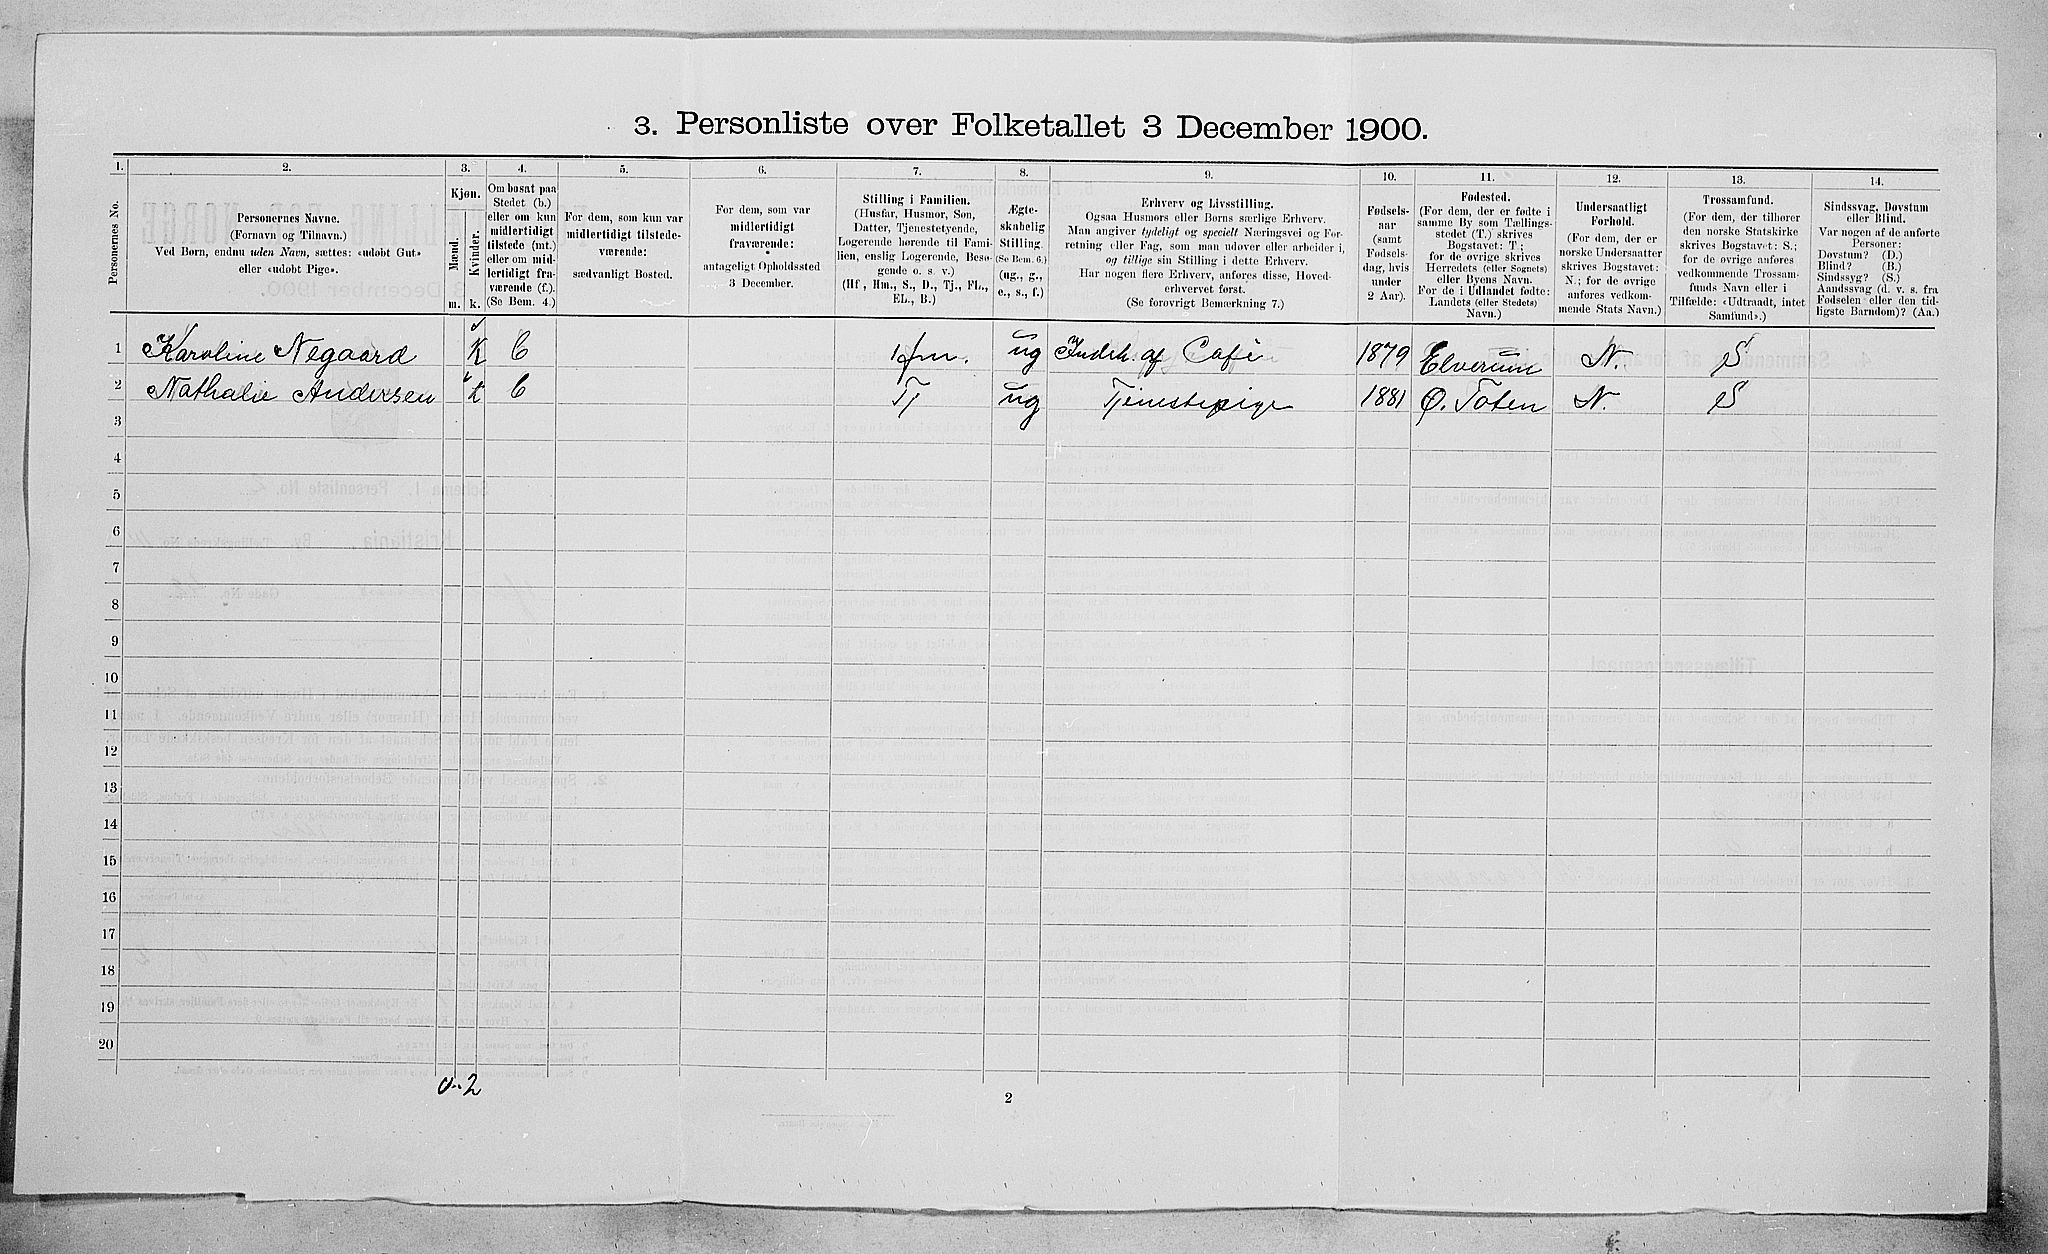 3. Personliste over Folketallet 3 December 1900.
1. 2. 3. 4. 5. 6. 7. 8. 9. 10. 11. 12. 13. 14.
Personernes No.
Personernes Navne.
(Fornavn og Tilnavn.)
Ved Børn, endnu uden Navn, sættes: «udøbt Gut»
eller «udøbt Pige».
Kjøn.
Mænd.
Kvinder.
m. k.
Om bosat paa
Stedet (b.)
eller om kun
midlertidigt
tilstede (mt.)
eller om mid-
lertidigt fra-
værende (f.).
(Se Bem. 4.)
For dem, som kun var
midlertidigt tilstede-
værende:
sædvanligt Bosted.
For dem, som var
midlertidigt
fraværende:
antageligt Opholdssted
3 December.
Stilling i Familien.
(Husfar, Husmor, Søn,
Datter, Tjenestetyende,
Logerende hørende til Fami-
lien, enslig Logerende, Besø-
gende o. s. v.)
(Hf., Hm., S., D., Tj., FL.,
EL., B.)
Ægte-
skabelig
Stilling.
(Se Bem. 6.)
(ug., g.,
e., s., f.)
Erhverv og Livsstilling.
Ogsaa Husmors eller Børns særlige Erhverv.
Man angiver tydeligt og specielt Næringsvei og For-
retning eller Fag, som man udøver eller arbeider i,
og tillige sin Stilling i dette Erhverv.
Har nogen flere Erhverv, anføres disse, Hoved-
erhvervet først.
(Se forøvrigt Bemærkning 7.)
Fødsels-
aar
(samt
Fødsels-
dag, hvis
under
2 Aar).
Fødested.
(For dem, der er fødte i
samme By som Tællings-
stedet (T.) skrives
Bogstavet: T;
for de øvrige skrives
Herredets (eller Sognets)
eller Byens Navn.
For de i Udlandet fødte:
Landets (eller Stedets)
Navn.)
Undersaatligt
Forhold.
(For dem, der er
norske Undersaatter
skrives Bogstavet:
N.; for de øvrige
anføres vedkom-
mende Stats Navn.)
Trossamfund.
(For dem, der tilhører
den norske Statskirke
skrives Bogstavet: S.;
for de øvrige anføres
vedkommende Trossam-
funds Navn eller i
Tilfælde: «Udtraadt, intet
Samfund».)
Sindssvag, Døvstum
eller Blind.
Var nogen af de anførte
Personer:
Døvstum? (D.)
Blind? (B.)
Sindssyg? (S.)
Aandssvag (d. v. s. fra
Fødselen eller den tid-
ligste Barndom)? (Aa.)
1 Karoline Negaard K b Hm. ug Indeh. af Café 1879 Elverum N. S
2 Nathalie Andersen k b Tj ug Tjenestepige 1881 Ø. Toten N. S
3
4
5
6
7
8
9
10
11
12
13
14
15
16
17
18
19
20
0-2
2